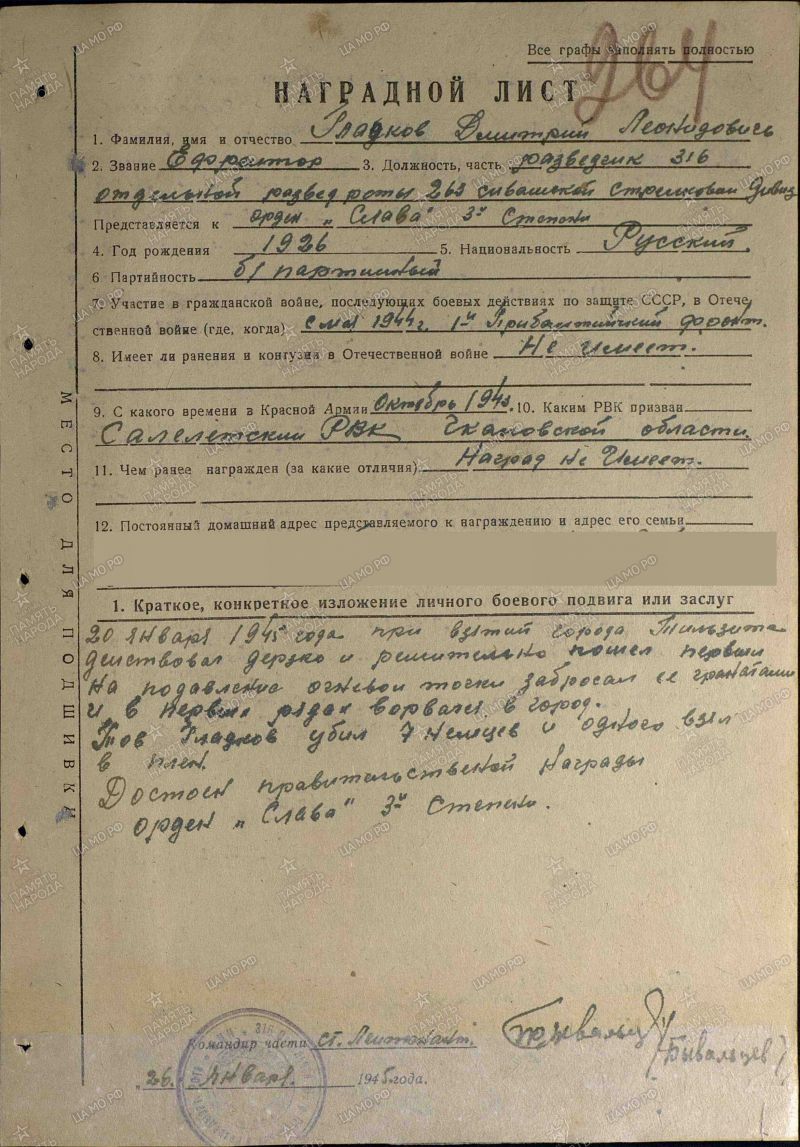 Все графы заполнять полностью
264
НАГРАДНОЙ ЛИСТ
1. Фамилия, имя и отчество Гладков Дмитрий Леонидович
2. Звание Ефрейтор 3. Должность, часть разведчик 316
отдельной развед роты 263 сивашской стрелковой Дивиз
Представляется к орден „Слава" 3й Степени
4. Год рождения 1926 5. Национальность Русский.
6 Партийность б/партийный
7. Участие в гражданской войне, последующих боевых действиях по защите СССР, в Отече
ственной войне (где, когда) с мая 1944 г. 1й Прибалтийский фронт.
8. Имеет ли ранения и контузии в Отечественной войне Не имеет.
9. С какого времени в Красной Армии Октябрь 1943. 10. Каким РВК призван
РВК Чкаловской области.
11. Чем ранее награжден (за какие отличия) Наград не Имеет.
12. Постоянный домашний адрес представляемого к награждению и адрес его семьи
1. Краткое, конкретное изложение личного боевого подвига или заслуг
20 января 1945 года при взятий города Тильзита
действовал дерзко и решительно пошел первым
на подавление огневой точки забросал ее гранатами
и в первых рядах ворвался в город.
Тов Гладков убил 7 немцев и одного взял
в плен.
Достоен правительственной Награды
орден „Слава" 3й Степени.
Командир части ст. Лейтенант.
(Бывальцев)
„26" января 1945 года.
МЕСТО ДЛЯ ПОДШИВКИ
ПАМЯТЬ НАРОДА
ЦАМО.РФ